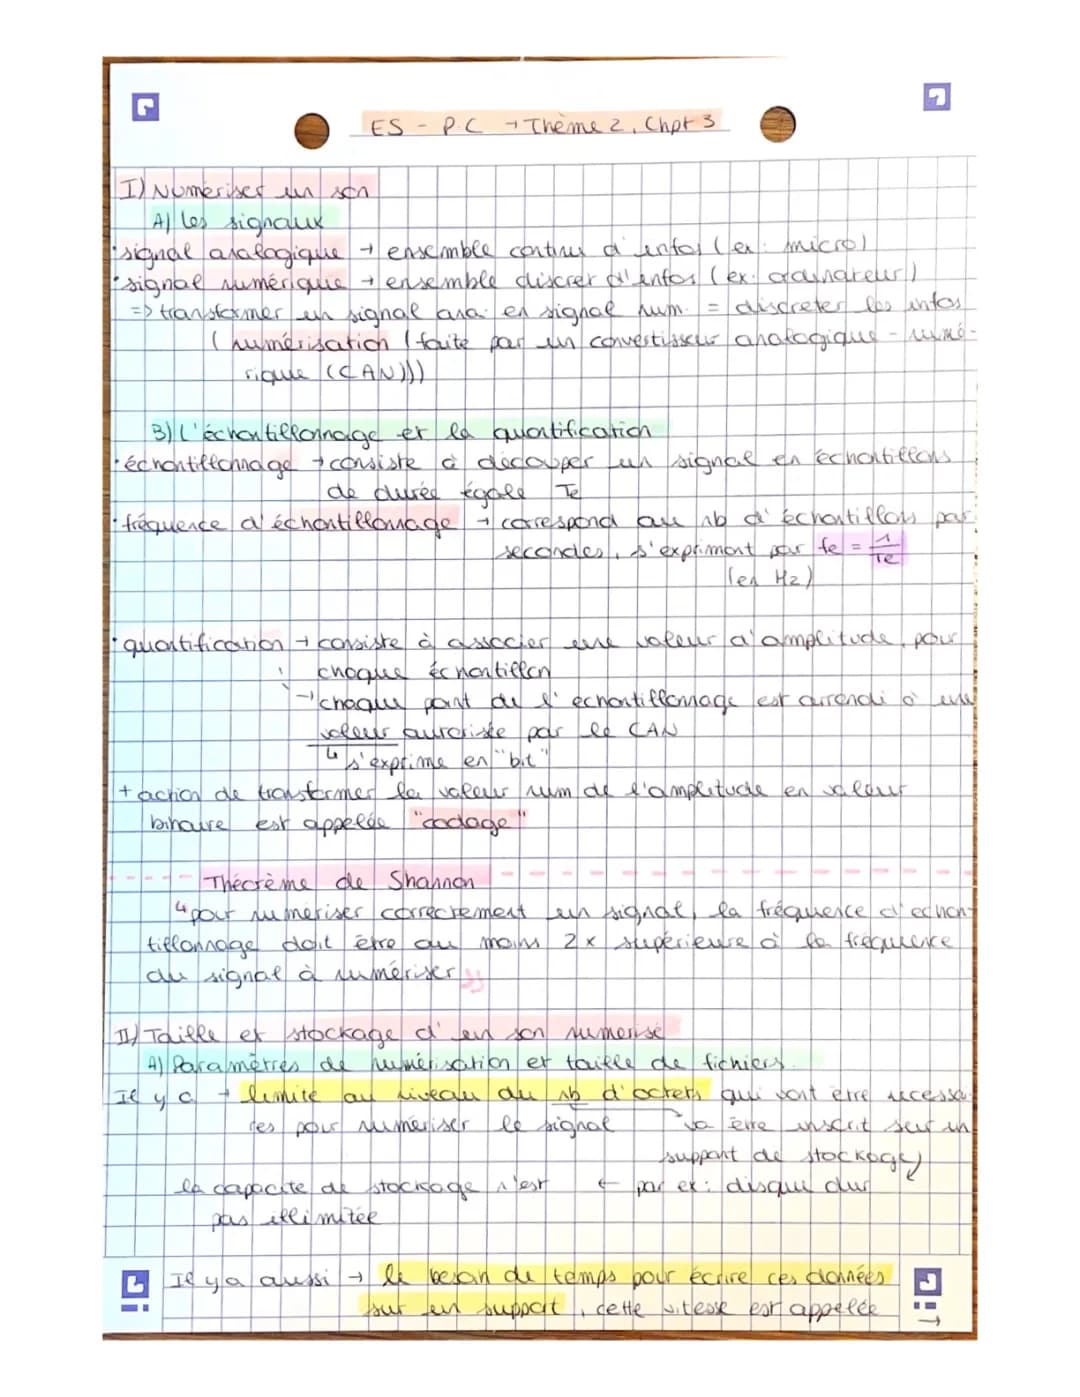 ES - P.C → Thème 2, Chpt 3
I) Numériser un son
A) Les signaux
• signal analogique → ensemble continu d'infos (ex: micro)
• signal numérique → ensemble discret d'infos (ex: ordinateur)
=> transformer un signal ana. en signal num. = discréter les infos
(numérisation (faite par un convertisseur analogique - numé-
rique (CAN)))
B) L'échantillonnage et la quantification
• échantillonnage → consiste à découper un signal en échantillons
de durée égale Te
• fréquence d'échantillonnage → correspond au nb d'échantillons par
secondes, s'expriment par fe = 1/Te
(en Hz)
• quantification → consiste à associer une valeur d'amplitude, pour
chaque échantillon
→ chaque point de l'échantillonnage est arrondi à une
valeur autorisée par le CAN
↳ s'exprime en "bit"
+ action de transformer la valeur num de l'amplitude en valeur
binaire est appelée "codage"
Théorème de Shannon
↳ pour numériser correctement un signal, la fréquence d'échan-
tillonnage doit être au moins 2x supérieure à la fréquence
du signal à numériser
II) Taille et stockage d'un son numérisé
A) Paramètres de numérisation et taille de fichiers.
Il y a → limite au niveau du nb d'octets qui vont être nécessai
res pour numériser le signal
va être inscrit sur un
support de stockage
la capacité de stockage n'est ← par ex: disque dur
pas illimitée
Il y a aussi → le besoin de temps pour écrire ces données
sur un support, cette vitesse est appelée